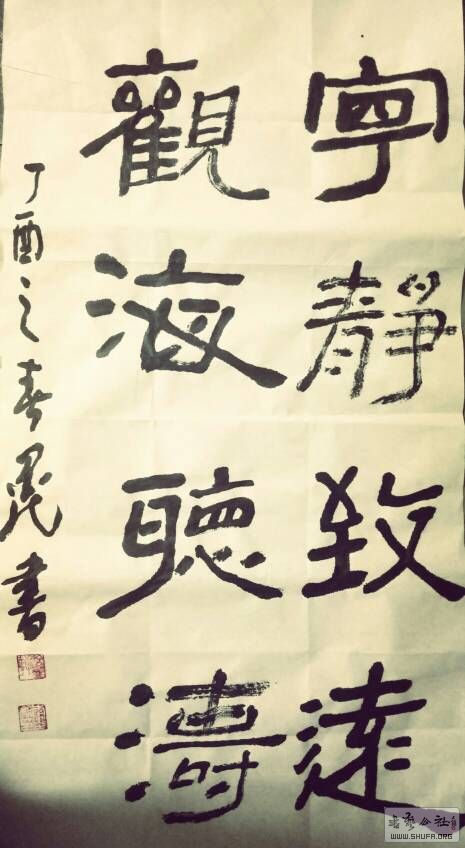 寧靜致遠
觀海聽濤
丁酉之春
書
書法公社
WWW.SHUFA.ORG